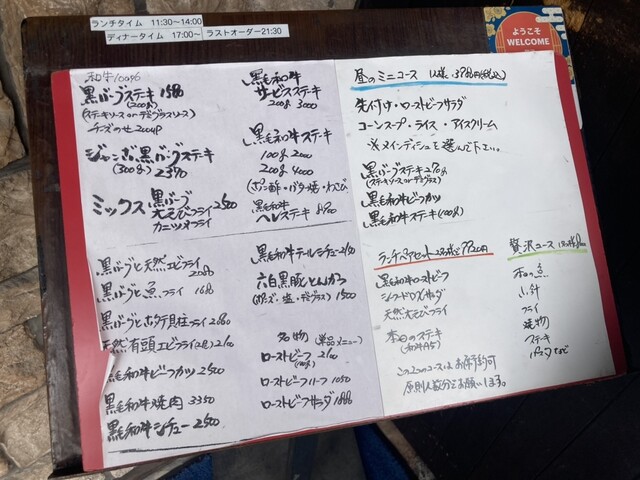 ランチタイム 11:30〜14:00
ディナータイム 17:00〜 ラストオーダー21:30
ようこそ
WELCOME
和牛100%
黒バーグステーキ 1580
(200g)
(ステーキソース orデミグラスソース)
チーズのせ 200円
ジャンボ黒バーグステーキ
(300g) 2370
ミックス 黒バーグ
大えびフライ 2500
カニツメフライ
黒毛和牛
サービスステーキ
200g 3000
黒毛和牛ステーキ
100g 2000
200g 4000
(ポン酢・バター焼・わさび)
黒毛和牛
ヘレステーキ
黒バーグと天然エビフライ 2080
黒バーグと魚フライ
黒バーグとホタテ貝柱フライ 2080
天然有頭エビフライ(2尾) 2100
黒毛和牛ビーフカツ 2500
黒毛和牛焼肉 3350
黒毛和牛シチュー 2500
黒毛和牛テールシチュー
六白黒豚とんかつ
塩・デミグラス) 1500
名物 (単品メニュー)
ローストビーフ 2100
ローストビーフハーフ 1050
ローストビーフサラダ
昼のミニコース
先付け・ローストビーフサラダ
コーンスープ・ライス・アイスクリーム
※メインディシュを選んで下さい。
黒バーグステーキ
(ステーキソース orデミグラス)
黒毛和牛ビーフカツ
黒毛和牛ステーキ(100g)
ランチペアセット 2名様で 7920円
黒毛和牛ローストビーフ
シーフードサラダ
天然大えびフライ
本日のステーキ
(和牛A5)
この2つのコースはお予約可
原則人数分でお願いします。
贅沢コース
本日の魚
小針
フライ
焼物
ステーキ